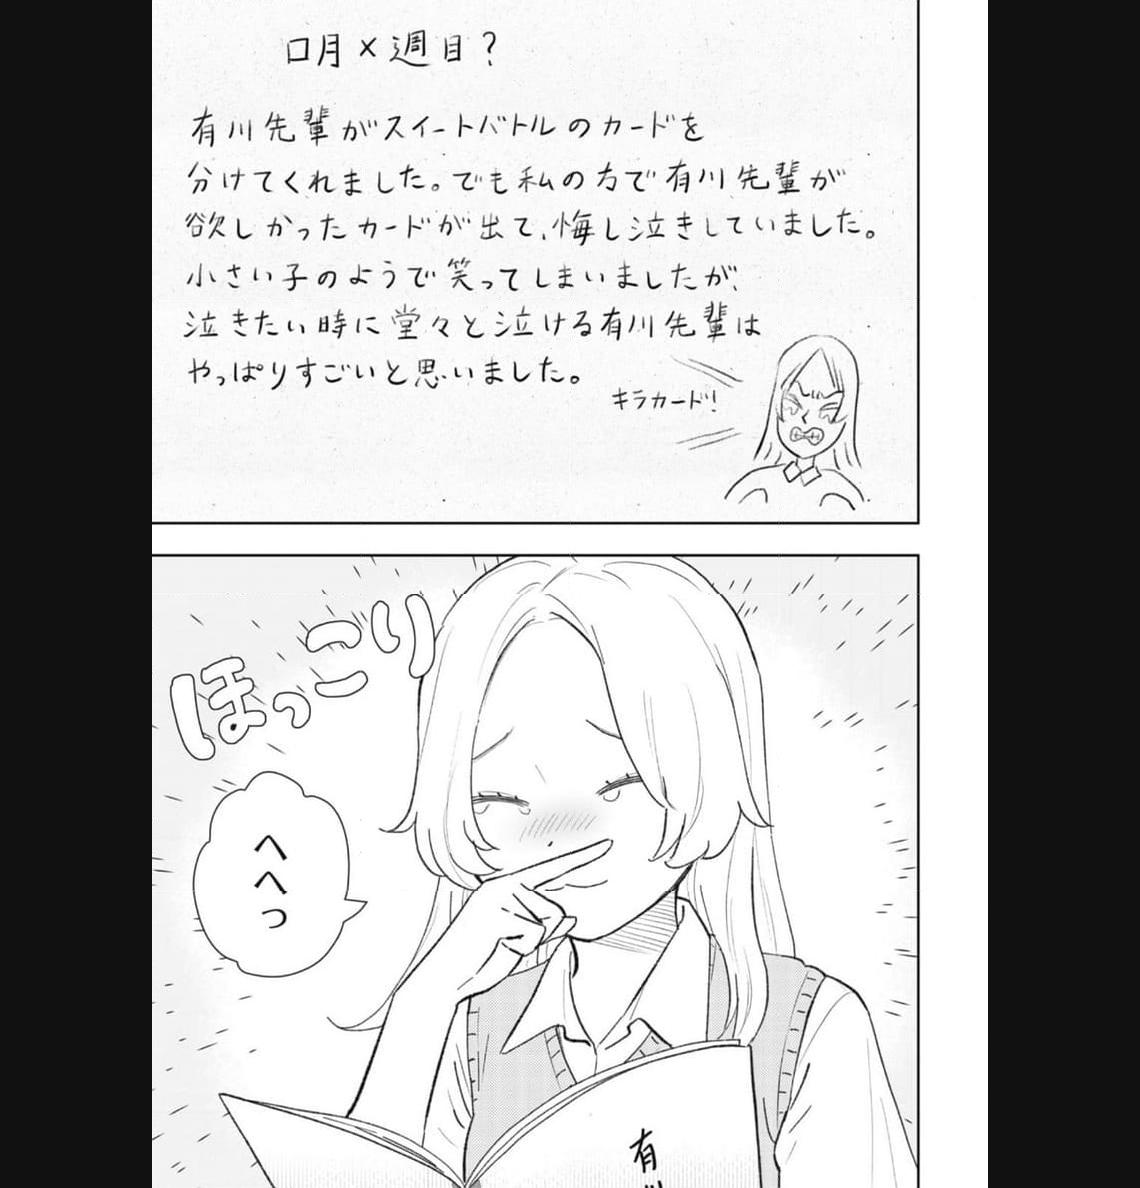 口月×週目?
有川先輩がスイートバトルのカードを
分けてくれました。でも私の方で有川先輩が
欲しかったカードが出て、悔し泣きしていました。
小さい子のようで笑ってしまいましたが、
泣きたい時に堂々と泣ける有川先輩は
やっぱりすごいと思いました。
キラカード!
ほっこり
へへっ
有川